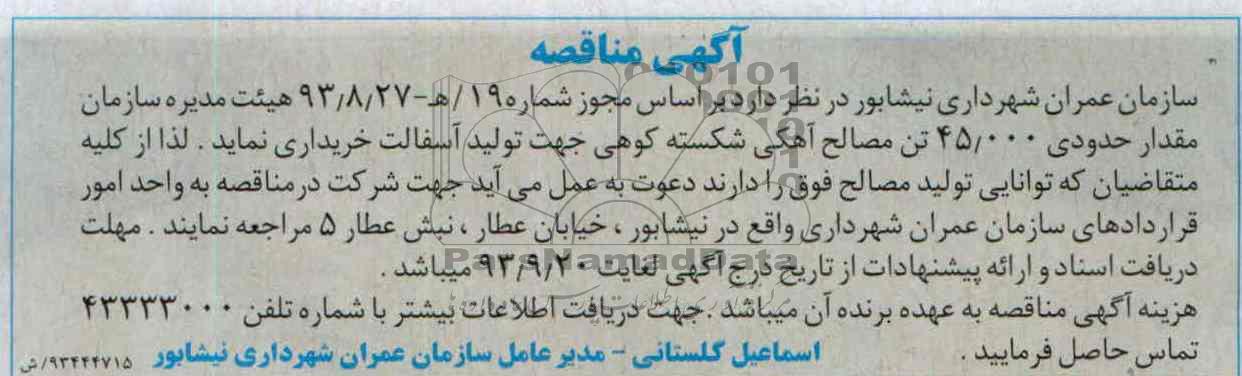 آگهی مناقصه
سازمان عمران شهرداری نیشابور در نظر دارد براساس مجوز شماره ۱۹/هـ-۹۳٫۸٫۲۷ هیئت مدیره سازمان
مقدار حدودی ۴۵٫۰۰۰ تن مصالح آهکی شکسته کوهی جهت تولید آسفالت خریداری نماید . لذا از کلیه
متقاضیان که توانایی تولید مصالح فوق را دارند دعوت به عمل می آید جهت شرکت در مناقصه به واحد امور
قراردادهای سازمان عمران شهرداری واقع در نیشابور ، خیابان عطار ، نبش عطار ۵ مراجعه نمایند . مهلت
دریافت اسناد و ارائه پیشنهادات از تاریخ درج آگهی لغایت ۹۳٫۹٫۲۰ میباشد .
هزینه آگهی مناقصه به عهده برنده آن میباشد . جهت دریافت اطلاعات بیشتر با شماره تلفن ۴۳۳۳۳۰۰۰
تماس حاصل فرمایید .
اسماعیل گلستانی - مدیر عامل سازمان عمران شهرداری نیشابور
۹۳۴۴۴۷۱۵/ش
ParsNamadData